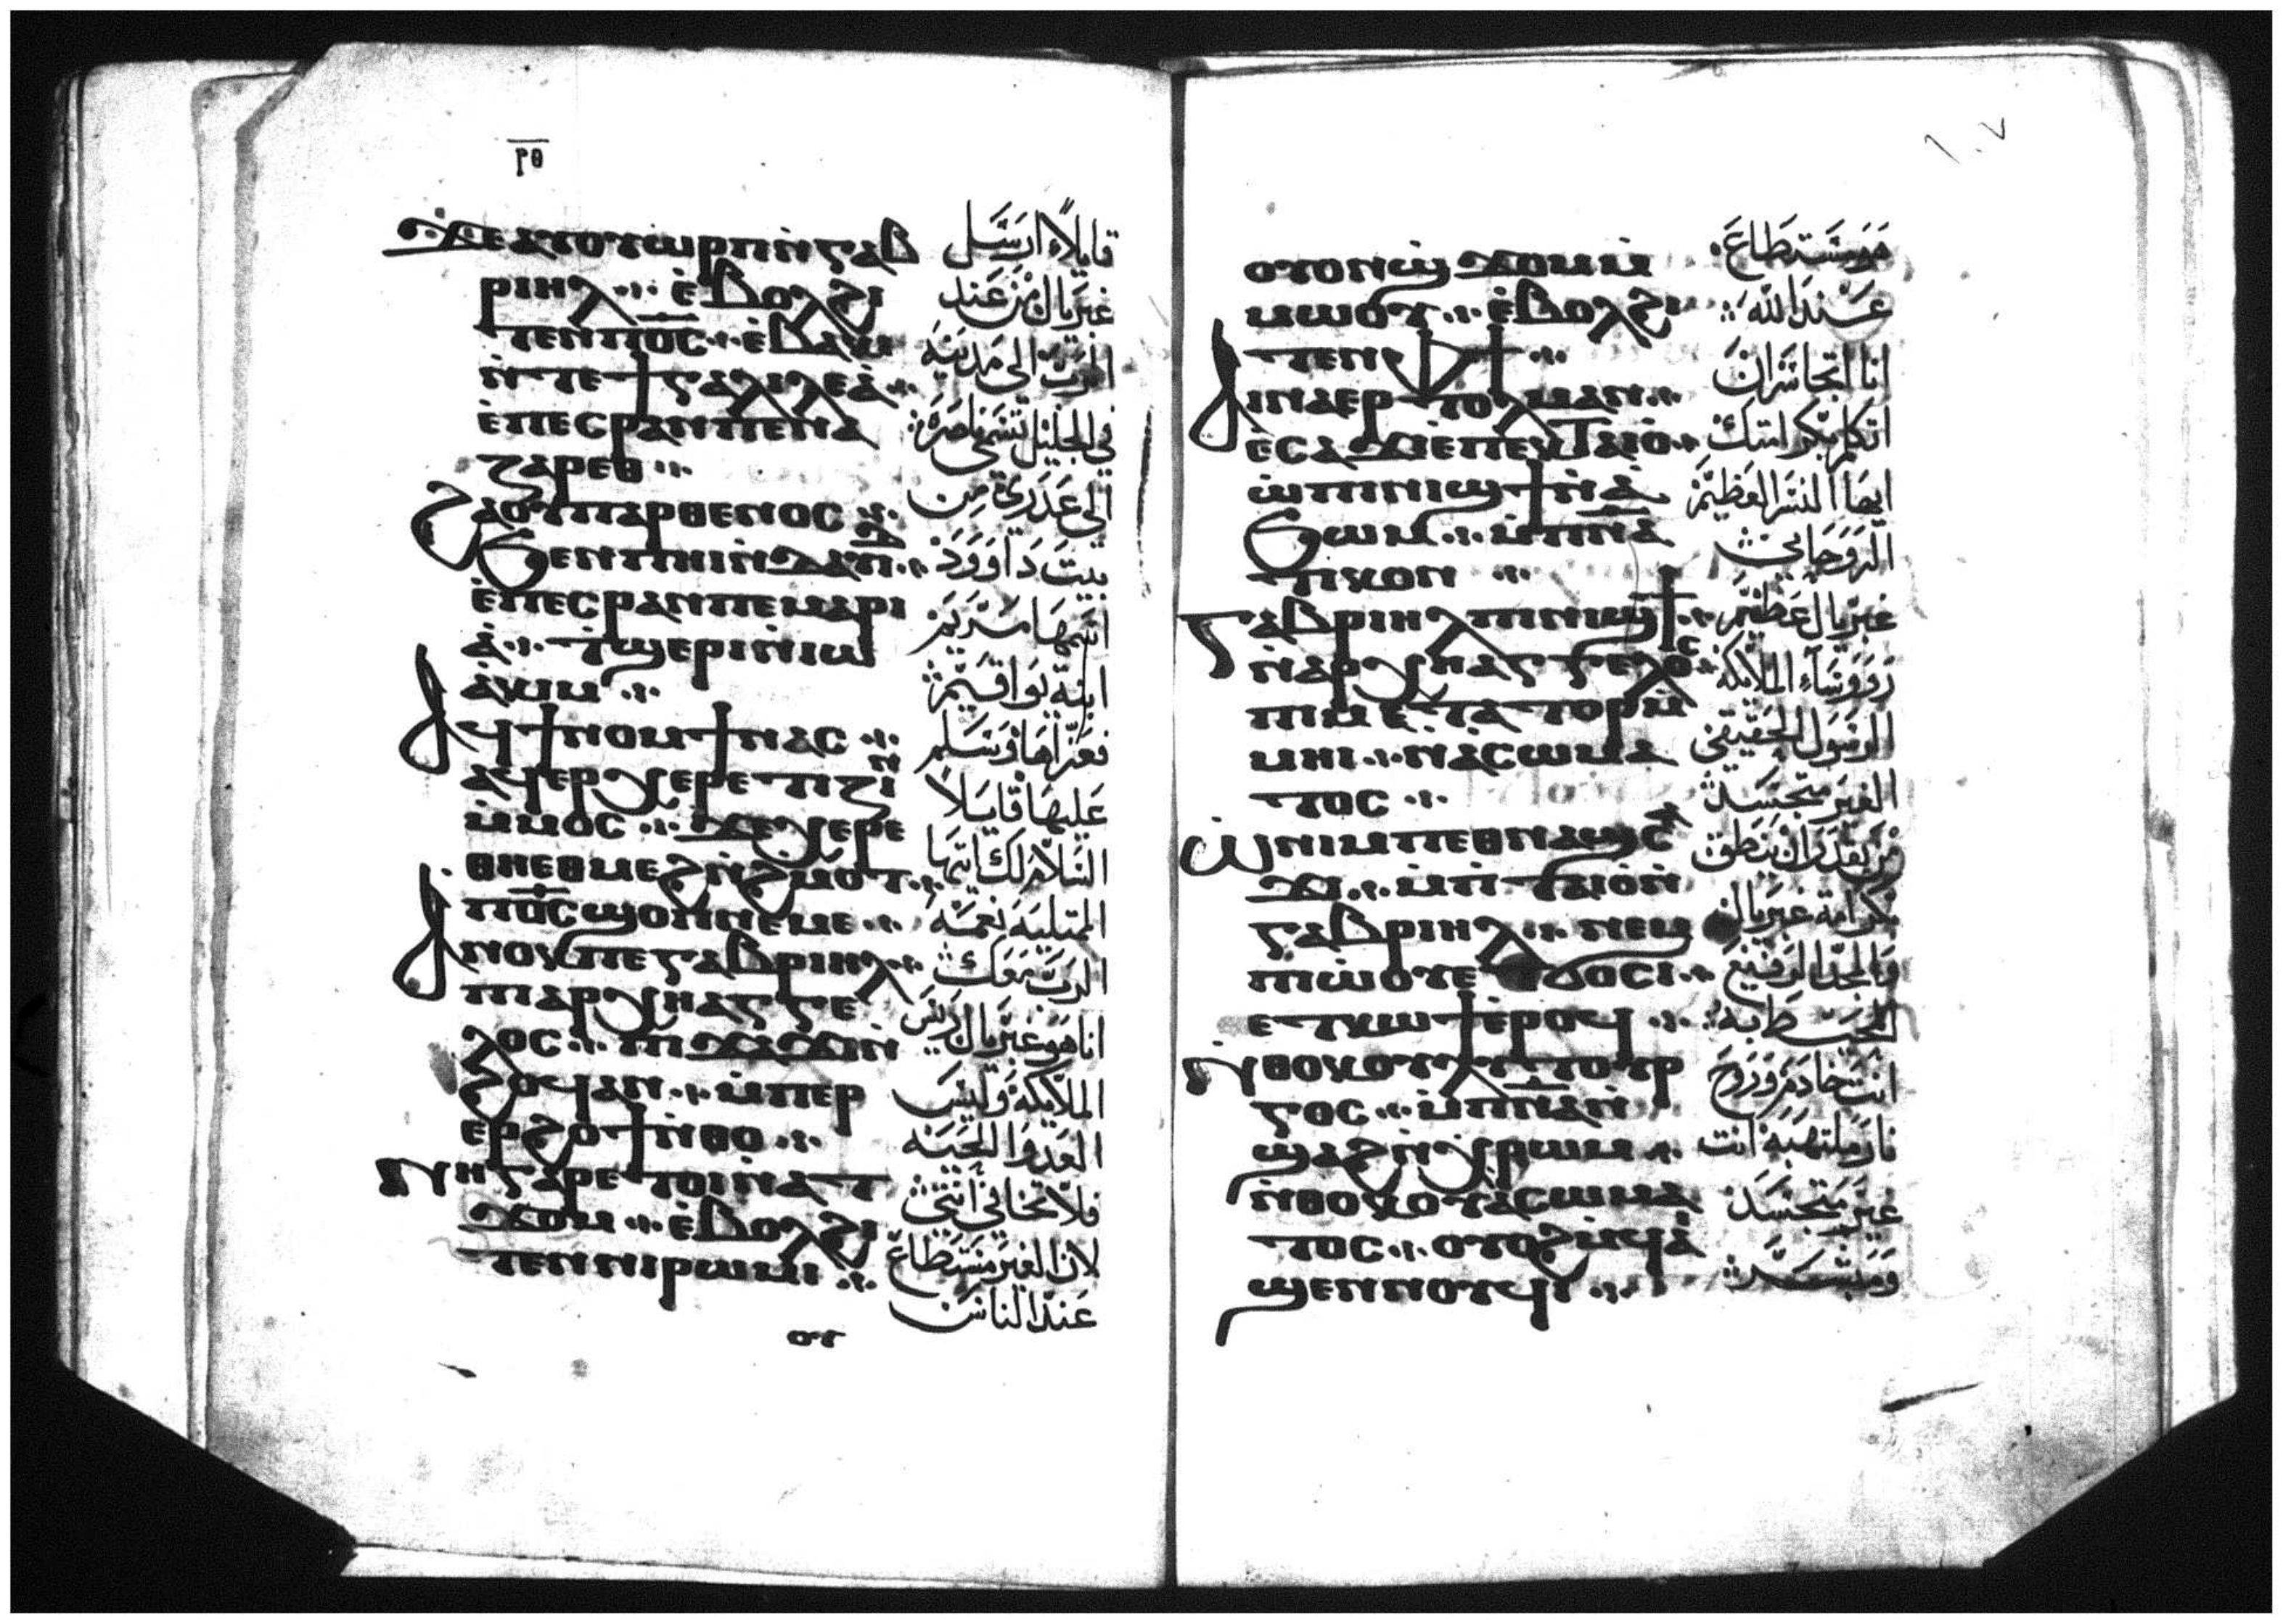 ⲣⲑ
ϫⲉ ⲁⲩⲟⲩⲱⲣⲡ ⲛ̀ⲅⲁⲃ
ⲣⲓⲏⲗ ⁘ ⲉ̀ⲃⲟⲗϩⲓ
ⲧⲉⲛ ⲡⲟ̅ⲥ̅ ⁘ ⲉ̀ⲃⲁⲕⲓ
ⲛ̀ⲧⲉ ϯⲅⲁⲗⲓⲗⲉⲁ̀ ⁘
ⲉ̀ⲡⲉⲥⲣⲁⲛ ⲡⲉ ⲛⲁ
ⲍⲁⲣⲉⲑ ⁘
ϩⲁ ⲟⲩⲡⲁⲣⲑⲉⲛⲟⲥ ⁘
ϧⲉⲛ ⲡⲏⲓ ⲛ̀ⲇⲁⲇ̅ ⁘
ⲉ̀ⲡⲉⲥⲣⲁⲛ ⲡⲉ ⲙⲁⲣⲓ
ⲁ̀ ⁘ ϯϣⲉⲣⲓ ⲛ̀ⲓⲱ
ⲁ̀ⲕⲓⲙ ⁘
ⲁϥϯⲛⲟⲙϯ ⲛⲁⲥ ⁘
ⲁϥⲉⲣⲭⲉⲣⲉⲧⲓⲍⲓⲛ
ⲙ̀ⲙⲟⲥ ⁘ ϫⲉ ⲭⲉⲣⲉ
ⲑⲏⲉⲑⲙⲉϩ ⲛ̀ϩⲙⲟⲧ ⁘
ⲡⲟ̅ⲥ̅ ϣⲟⲡ ⲛⲉⲙⲉ ⁘
ⲁⲛⲟⲕ ⲡⲉ ⲅⲁⲃⲣⲓⲏⲗ ⁘
ⲡⲓⲁⲣⲭⲏⲁⲅⲅⲉ
ⲗⲟⲥ ⁘ ⲡⲓϫⲁϫⲓ ⲛ̀
ϩⲟϥ ⲁⲛ ⁘ ⲙ̀ⲡⲉⲣ
ⲉⲣϩⲟϯ ⲛ̀ⲑⲟ ⁘
ⲛⲏ ⲅⲁⲣ ⲉⲧⲟⲓ ⲛ̀ⲁⲧ
ϫⲟⲙ ⁘ ⲉ̀ⲃⲟⲗϩⲓ
ⲧⲉⲛ ⲛⲓⲣⲱⲙⲓ ⁘
ⲟⲩ
قايلاً ارسل
غبريال من عند
الرب الى مدينة
في الجليل تسمى ناصرة
الى عذرى من
بيت داوود
اسمها مريم
ابنة يواقيم
فعزاها وسلم
عليها قايلاً
السلام لك ايتها
الممتلية نعمة
الرب معك
انا هو غبريال رييس
الملايكة وليس
العدو الحية
فلا تخافي انتي
لان الغير مستطاع
عند الناس
١٠٧
ⲟⲩⲟⲛ ϣϫⲟⲙ ⲙ̀
ⲙⲱⲟⲩ ⁘ ⲉ̀ⲃⲟⲗϩⲓ
ⲧⲉⲛ ⲫϯ ⁘
ⲁⲓⲛⲁⲉⲣⲧⲟⲗⲙⲁⲛ ⁘
ⲉ̀ⲥⲁϫⲓ ⲉ̀ⲡⲉⲕⲧⲁⲓⲟ ⁘
ⲱ̀ ⲡⲓⲛⲓϣϯ ⲛ̀ⲁ̀
ϧⲱⲙ ⁘ ⲙ̀ⲡⲛⲁ
ⲧⲓⲕⲟⲛ ⁘
ⲅⲁⲃⲣⲓⲏⲗ ⲡⲓⲛⲓϣϯ ⁘
ⲛ̀ⲁⲣⲭⲏⲁⲅⲅⲉⲗⲟⲥ ⁘
ⲡⲓⲙⲉⲧⲁⲧⲟⲣ ⲙ̀
ⲙⲏⲓ ⁘ ⲛ̀ⲁ̀ⲥⲱⲙⲁ
ⲧⲟⲥ ⁘
ⲱ ⲛⲓⲙ ⲡⲉⲑⲛⲁϣⲥⲁ
ϫⲓ ⁘ ⲙ̀ⲡⲧⲁⲓⲟ ⲛ̀
ⲅⲁⲃⲣⲓⲏⲗ ⁘ ⲛⲉⲙ
ⲡⲓⲱ̀ⲟⲩ ⲉⲧϭⲟⲥⲓ ⁘
ⲉⲧⲕⲱϯ ⲉ̀ⲣⲟϥ ⁘
ⲛ̀ⲑⲟⲕ ⲟⲩⲗⲓⲧⲟⲩⲣ
ⲅⲟⲥ ⁘ ⲙ̀ⲡⲛ̅ⲁ̅ ⲛ̀
ϣⲁϩ ⲛ̀ⲭⲣⲱⲙ ⁘
ⲛ̀ⲑⲟⲕ ⲟⲩⲁ̀ⲥⲱⲙⲁ
ⲧⲟⲥ ⁘ ⲟⲩⲟϩ ⲙ̀ϥⲁⲓ
ϣⲉⲛⲛⲟⲩϥⲓ ⁘
هو مستطاع
عند الله
انا اتجاسر ان
اتكلم بكرامتك
ايها النسر العظيم
الروحاني
غبريال عظيم
رووساء الملايكة
الرسول الحقيقي
الغير متجسد
من يقدر ان ينطق
بكرامة غبريال
والمجد الرفيع
المحيط به
انت خادم وروح
نار ملتهبة انت
غير متجسد
ومبشر